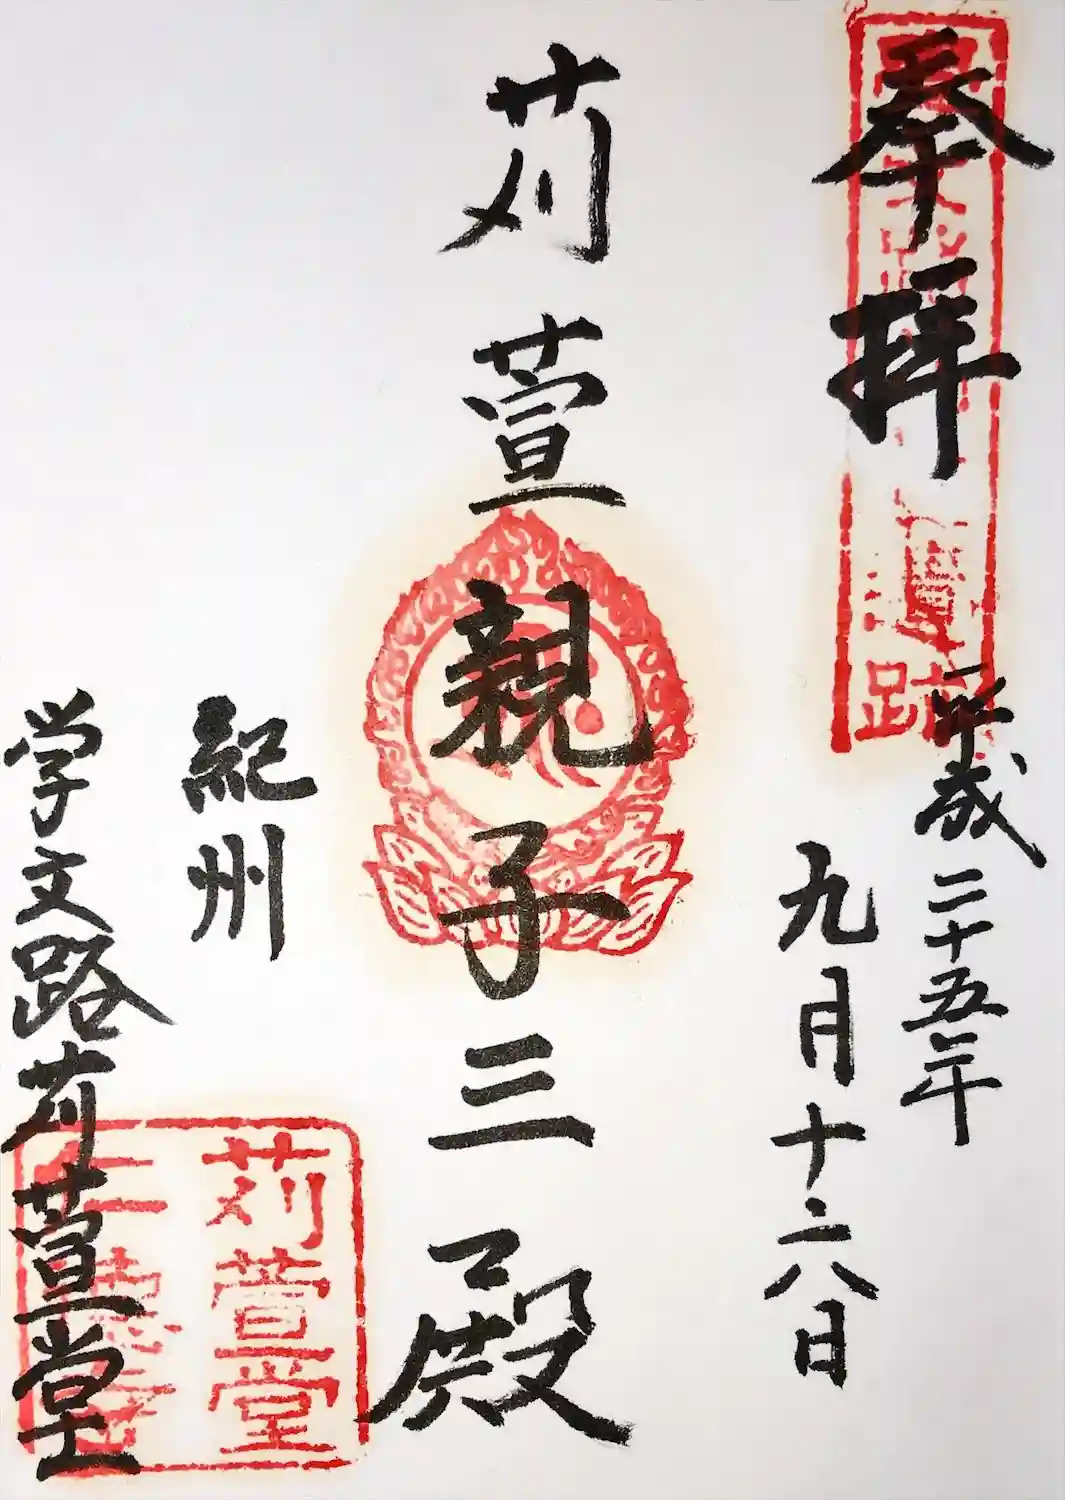 奉拝
平成二十五年
九月十六日
苅萱親子三殿
紀州
学文路苅萱堂
苅萱堂